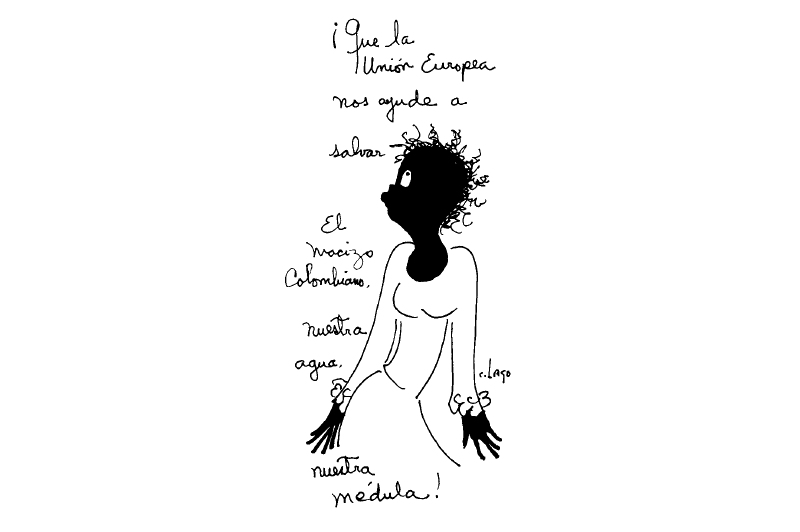 ¡Que la
Unión Europea
nos ayude a
salvar
El
macizo
Colombiano,
nuestra
agua,
c.Lago
nuestra
médula!